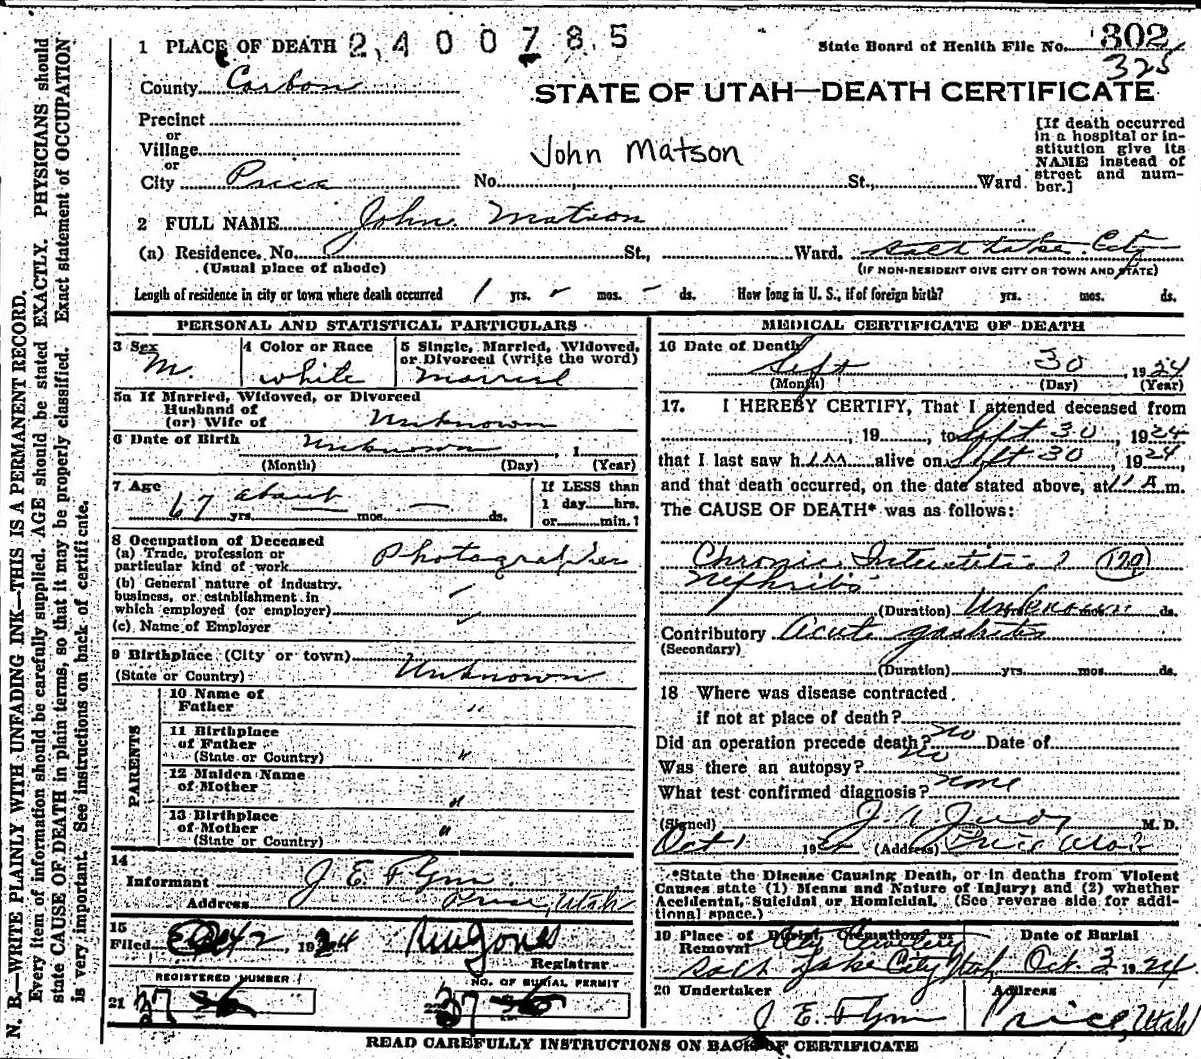 1 PLACE OF DEATH 2,400785
State Board of Health File No. 302
325
County Carbon
STATE OF UTAH—DEATH CERTIFICATE
Precinct
or
Village
or
City Price No. St., Ward
John Matson
[If death occurred
in a hospital or in-
stitution give its
NAME instead of
street and num-
ber.]
2 FULL NAME John Matson
(a) Residence. No. St., Ward. Salt Lake City
(Usual place of abode) (IF NON-RESIDENT GIVE CITY OR TOWN AND STATE)
Length of residence in city or town where death occurred 1 yrs. - mos. - ds. How long in U. S., if of foreign birth? yrs. mos. ds.
PERSONAL AND STATISTICAL PARTICULARS
3 Sex
M.
4 Color or Race
White
5 Single, Married, Widowed,
or Divorced (write the word)
Married
5a If Married, Widowed, or Divorced
Husband of
(or) Wife of Unknown
6 Date of Birth Unknown, 1
(Month) (Day) (Year)
7 Age about
67 yrs. — mos. — ds.
If LESS than
1 day hrs.
or min.?
8 Occupation of Deceased
(a) Trade, profession or
particular kind of work Photographer
(b) General nature of industry,
business, or establishment in
which employed (or employer)
(c) Name of Employer
9 Birthplace (City or town)
(State or Country) Unknown
PARENTS
10 Name of
Father "
11 Birthplace
of Father
(State or Country) "
12 Maiden Name
of Mother "
13 Birthplace
of Mother "
(State or Country)
14
Informant J. E. Flynn
Address Price, Utah
15
Filed Oct 2, 1924 Jones
Registrar
REGISTERED NUMBER NO. OF BURIAL PERMIT
21 37 22 37
MEDICAL CERTIFICATE OF DEATH
16 Date of Death
Sept 30, 1924
(Month) (Day) (Year)
17. I HEREBY CERTIFY, That I attended deceased from
, 19 , to Sept 30, 1924
that I last saw him alive on Sept 30, 1924
and that death occurred, on the date stated above, at 11 A m.
The CAUSE OF DEATH* was as follows:
Chronic Interstitial (129)
Nephritis
(Duration) Unknown ds.
Contributory Acute gastritis
(Secondary)
(Duration) yrs. mos. ds.
18 Where was disease contracted
if not at place of death?
Did an operation precede death? No Date of
Was there an autopsy? No
What test confirmed diagnosis? none
(Signed) J. Judy M. D.
Oct 1 1924 (Address) Price Utah
*State the Disease Causing Death, or in deaths from Violent
Causes state (1) Means and Nature of Injury; and (2) whether
Accidental, Suicidal or Homicidal. (See reverse side for addi-
tional space.)
19 Place of Burial Cremation or
Removal City Cemetery
Salt Lake City Utah
Date of Burial
Oct. 3 1924
20 Undertaker
J. E. Flynn
Address
Price, Utah
READ CAREFULLY INSTRUCTIONS ON BACK OF CERTIFICATE
N. B.—WRITE PLAINLY WITH UNFADING INK—THIS IS A PERMANENT RECORD.
Every item of information should be carefully supplied. AGE should be stated EXACTLY. PHYSICIANS should
state CAUSE OF DEATH in plain terms, so that it may be properly classified. Exact statement of OCCUPATION
is very important. See instructions on back of certificate.